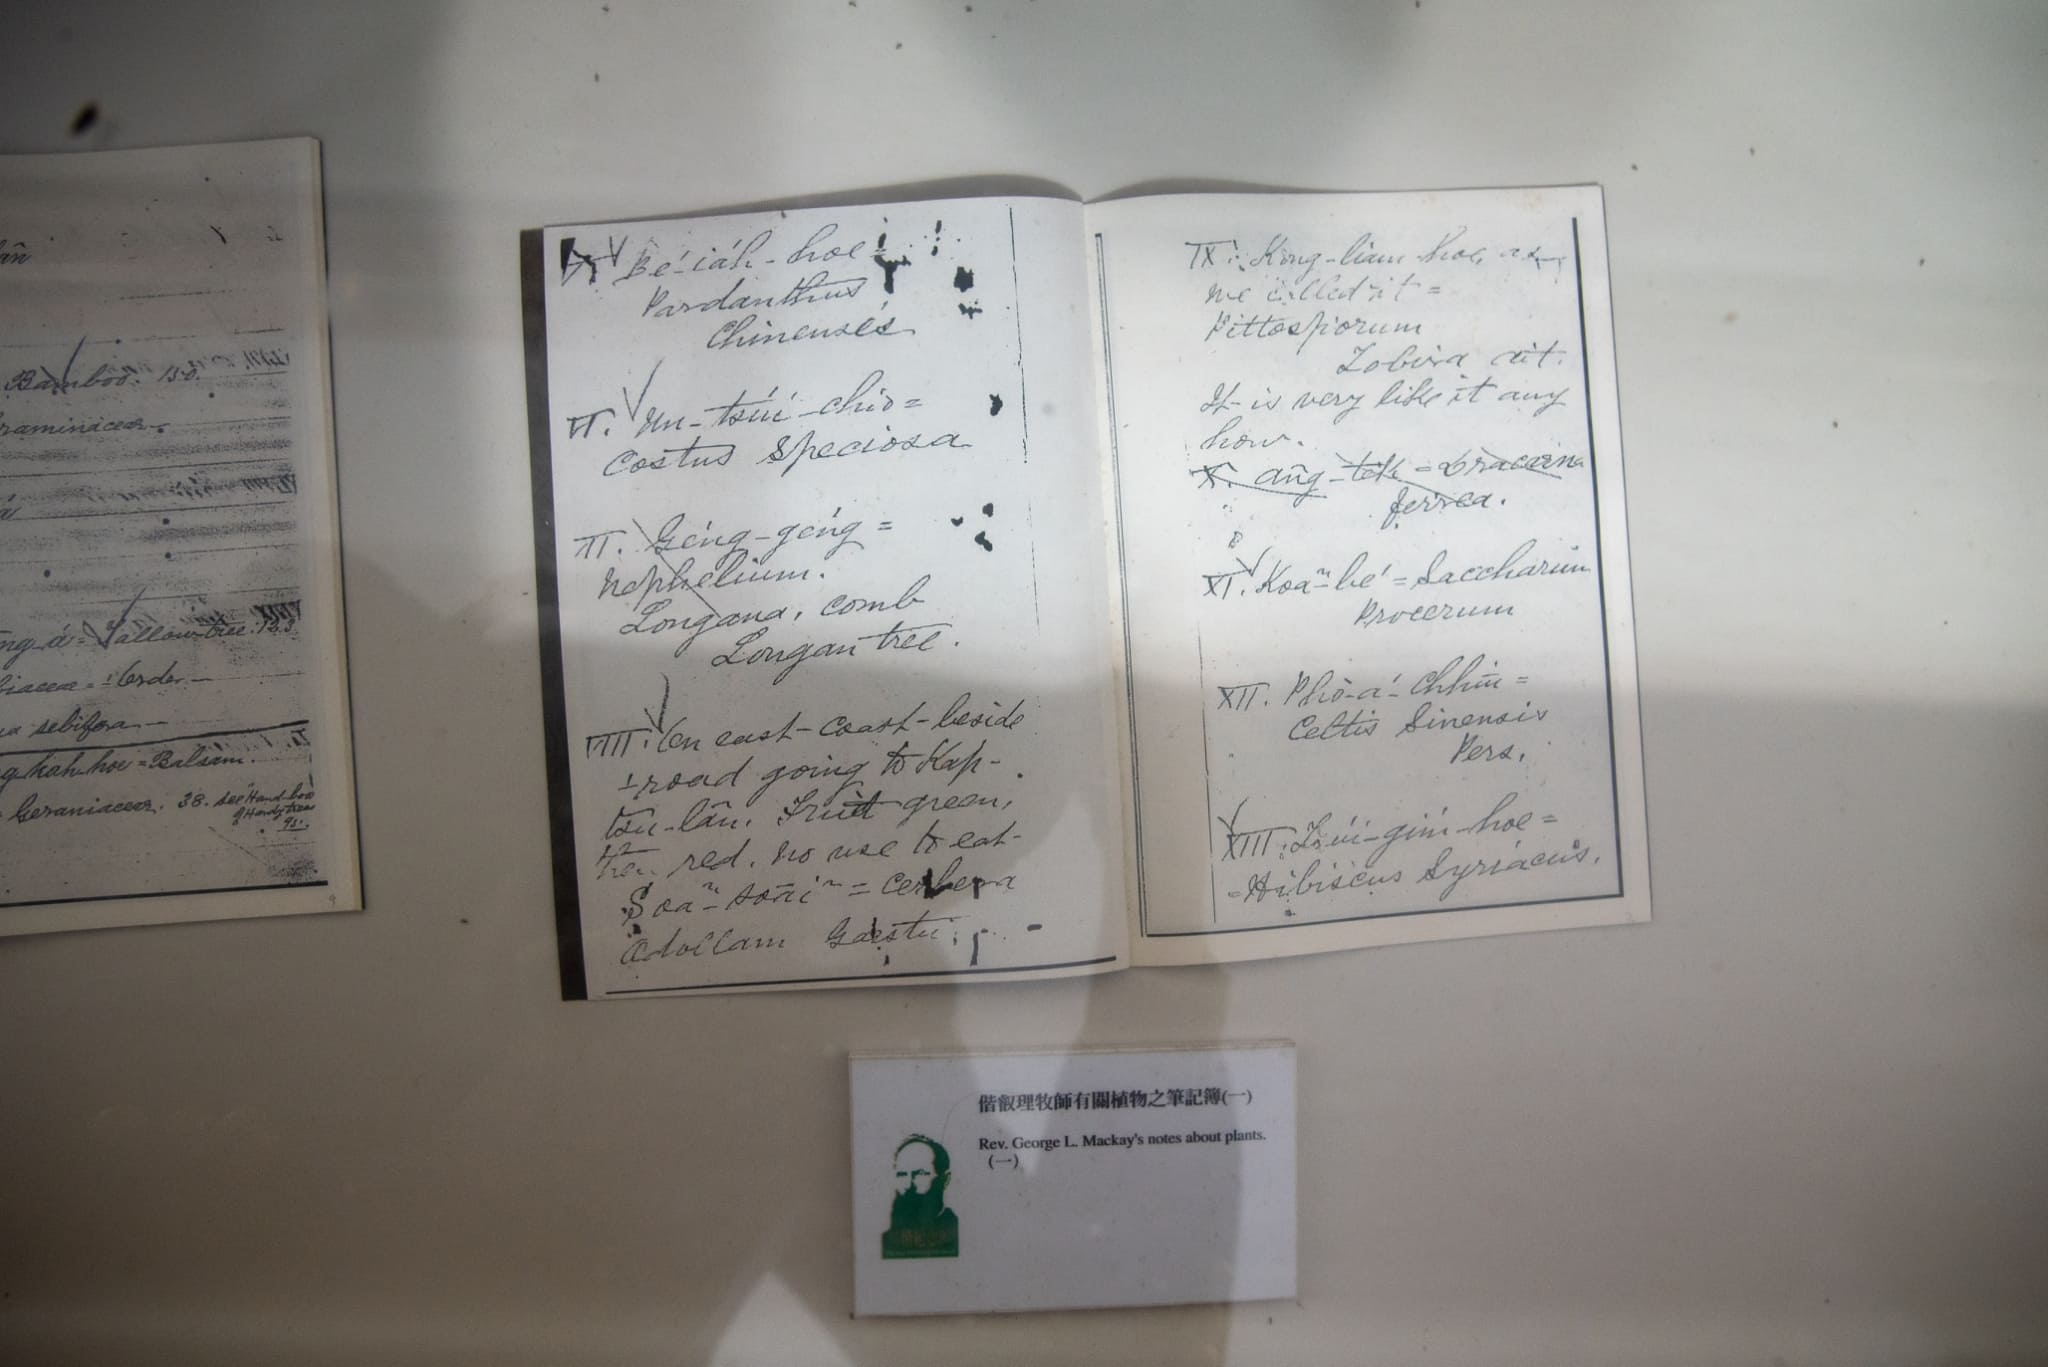 Bamboo. 150.
raminaceae
ng-á = Tallow-tree. 123
biaceae = Order
sebifera
g kah hoe = Balsam.
Geraniaceae. 38. See "Hand-boo
9
V. Bé-iáh-hoe =
Pardanthus
Chinensis
VI. Un-tsúi-chio =
Costus Speciosa
VII. Géng-géng =
Nephelium.
Longana, comb
Longan tree.
VIII. On east-coast-beside
road going to Kap-
tsu-lân. Fruit green,
then red. No use to eat-
Soaⁿ-soāiⁿ = Cerbera
Odollam Gaestu.
IX. King-liam hoe, as
we called it =
Pittosporum
Tobira ait.
It is very like it any
how.
X. âng-tek = Dracaena
ferrea.
XI. Koaⁿ-bé = Saccharum
Procerum
XII. Phò-á-chhiū =
Celtis Sinensis
Pers.
XIII. Tsúi-gím-hoe =
= Hibiscus Syriacus.
偕叡理牧師有關植物之筆記簿(一)
Rev. George L. Mackay's notes about plants.
(一)